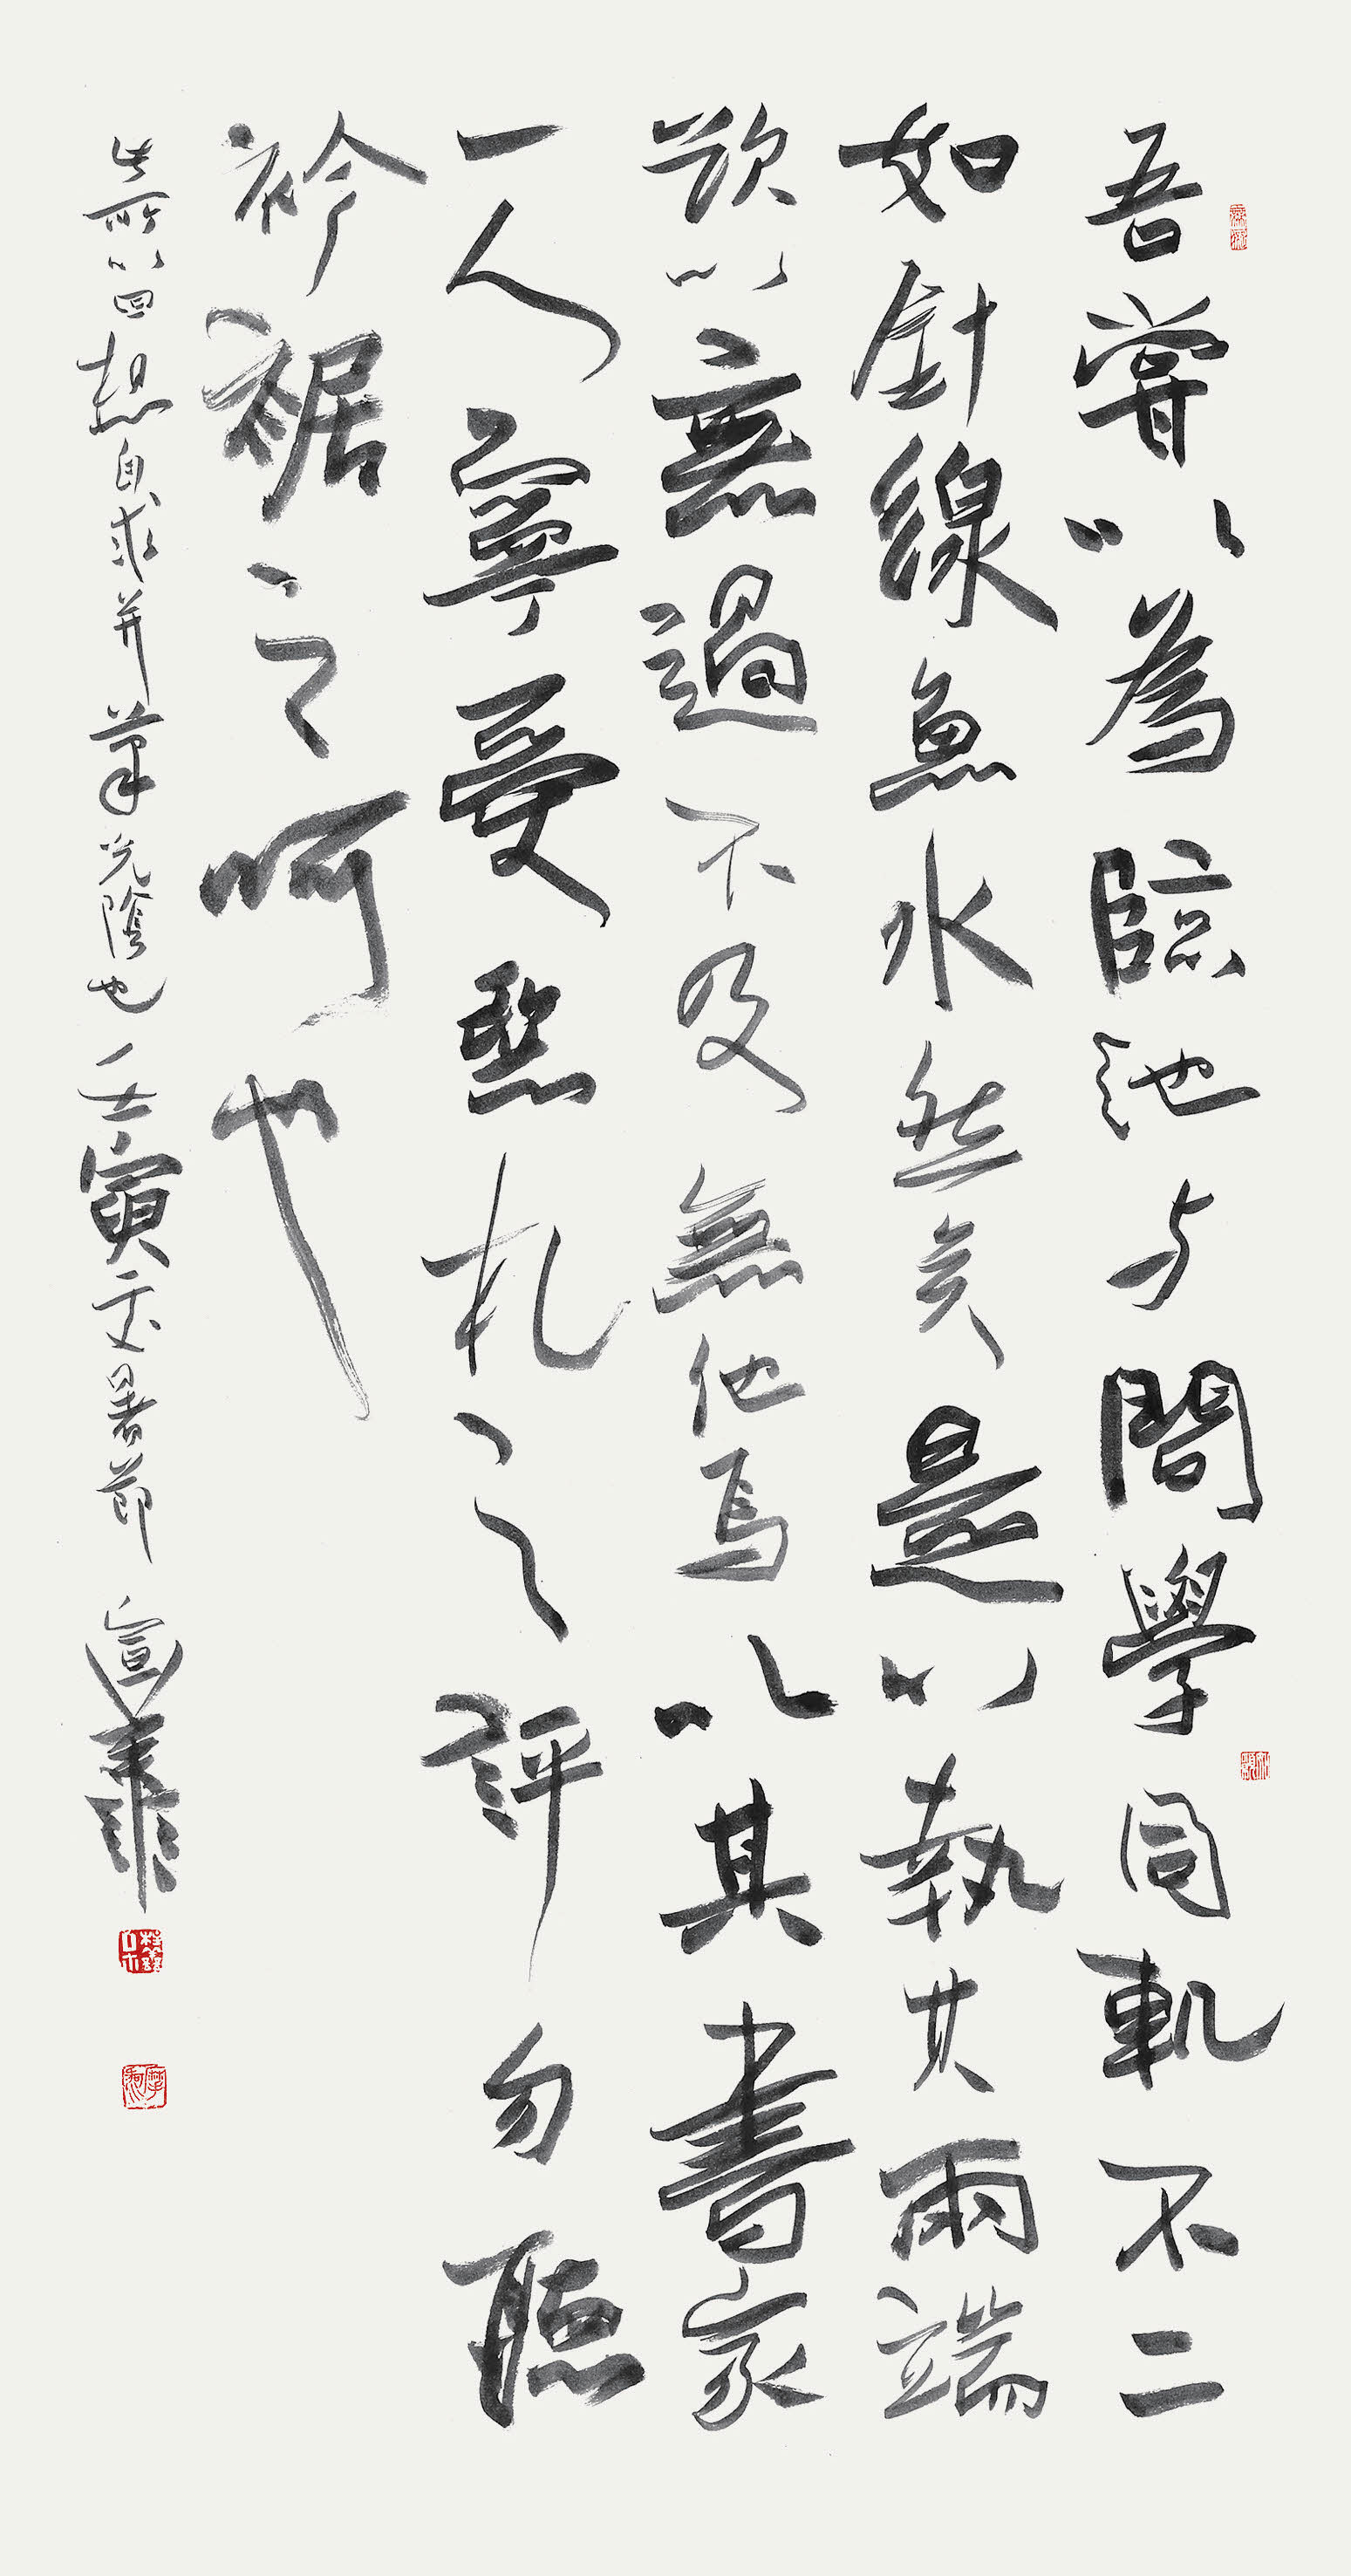 吾嘗以為臨池与問學同軌不二
如針線魚水然矣是以執其兩端
欲以無過不及無他焉以其書家
一人寧受愁札之評勿聽
衿裾之呵也
此所以回想自求并筆光陰也壬寅處暑節宣